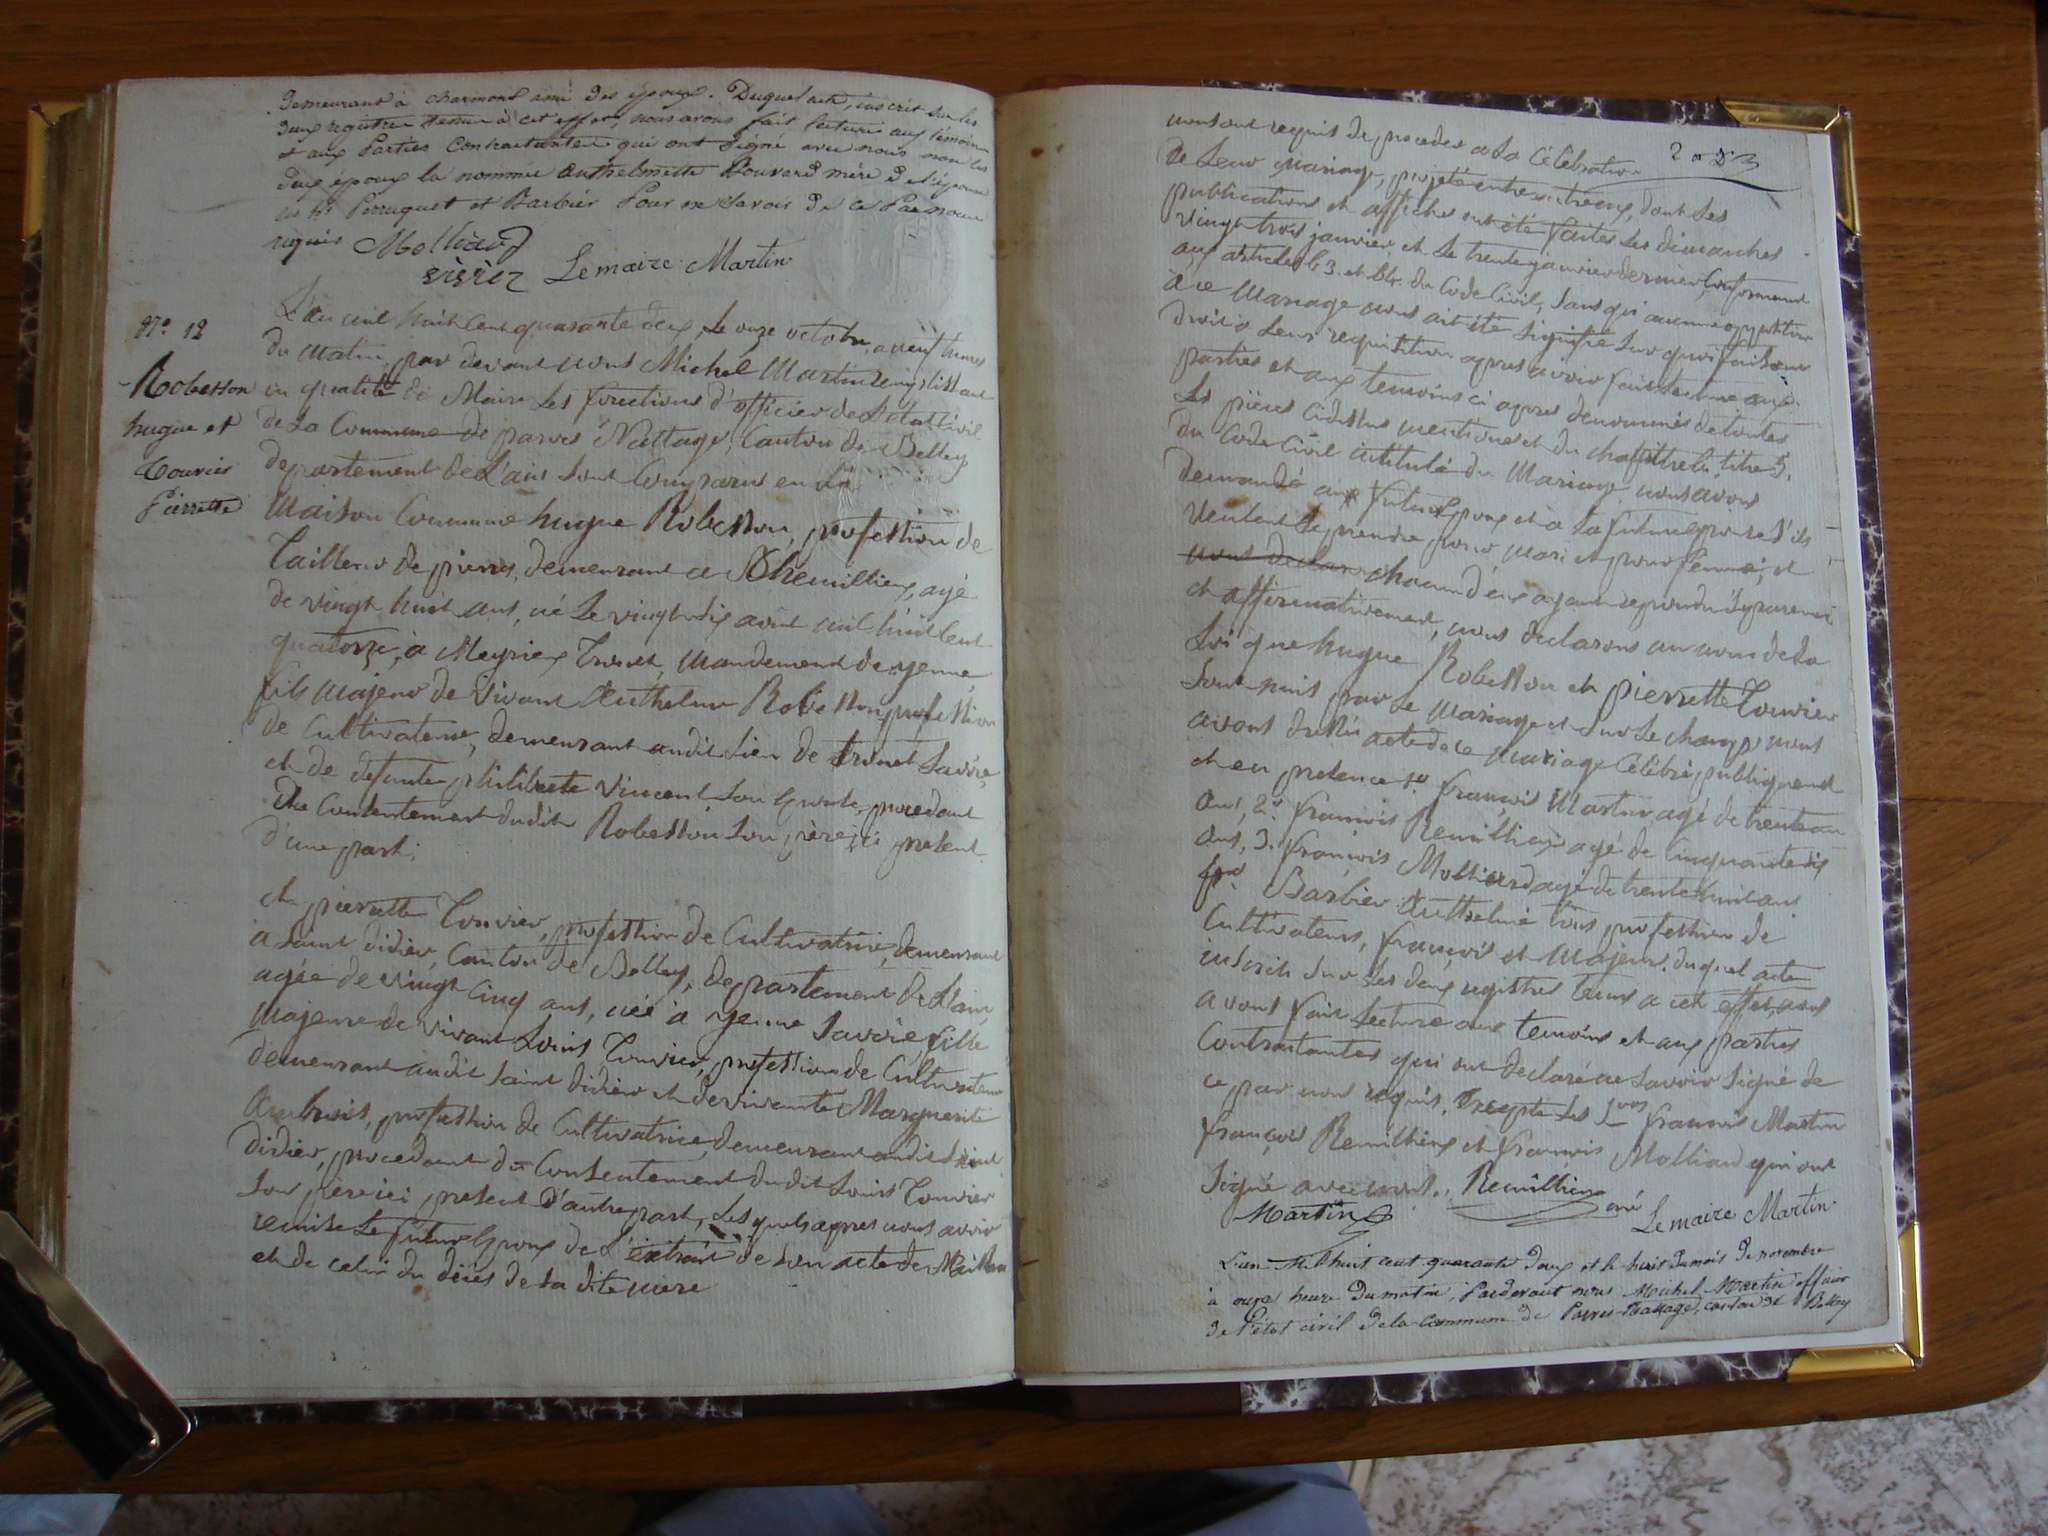 demeurant à charmont ami des époux. Duquel acte, inscrit sur les
deux registres tenus à cet effet, nous avons fait lecture aux témoins
et aux Parties Contractantes qui ont signé avec nous non les
deux époux la nommé Anthelmette Bouvard mère de l'épouse
ni Perruquet et Barbier Pour ne savoir de ce Par nous
requis Molliard
Lemaire Martin
N° 12
Robesson
hugue et
Touvier
Pierrette
L'an mil huit cent quarante deux, le onze octobre, a neuf heures
du matin, par devant nous Michel Martin remplissant
en qualité de Maire les fonctions d'officier de l'état Civil
de la Commune de parves Nattage, Canton de Belley
departement de L'ain sont comparus en la
Maison Commune hugue Robesson, profession de
Tailleur de pierres, demeurant a Chemillieu, agé
de vingt huit ans, né le vingt dix avril mil huit cent
quatorze, à Meyrieux Trouet, Mandement de yenne
fils majeur de vivant Anthelme Robesson profession
de Cultivateur, demeurant audit lieu de trouet Savoie,
et de defunte philiberte Vincent son Epouse, procedant
du Consentement dudit Robesson son père ici present
d'une part;
et pierrette Touvier, profession de Cultivatrice, demeurant
a Saint didier, Canton de Belley, departement de L'ain
agée de vingt cinq ans, née à yenne Savoie, fille
Majeure de vivant Louis Touvier, profession de Cultivateur
demeurant audit Saint didier et de vivante Marguerite
Ambrois, profession de Cultivatrice, demeurant audit Saint
didier, procedant du Consentement dudit Louis Touvier
son père ici present D'autre part, Lesquels apres nous avoir
remise le futur Epoux de L'extrait de son acte de Naissance
et de celui du décès de sa dite mere
nous ont requis de proceder a la Célébration
de Leur Mariage, projeté entre entre eux, dont les
publications et affiches ont été faites les dimanches
vingt trois janvier et le trente janvier dernier, Conformement
aux articles 63 et 64 du Code Civil, sans qu'aucune opposition
à ce Mariage nous ait été signifié sur quoi faisant
droit a leur requisition apres avoir fait lecture aux
parties et aux temoins ci apres denommés de toutes
les pièces cidessus mentionnés et du chapitre 6 titre 5.
du Code Civil intitulé du Mariage nous avons
demandé au futur Epoux et a la future epouse s'ils
veulent se prendre pour mari et pour femme; et
nous declar chacun d'eux ayant repondu séparement
et affirmativement, nous declarons au nom de la
Loi que hugue Robesson et pierrette Touvier
sont unis par le Mariage et sur le champ nous
avons dressé acte de ce Mariage Célébré publiquement
et en presence 1er françois Martin agé de trente
ans, 2e françois Remillieux agé de Cinquante dix
ans, 3. françois Molliard agé de trente huit ans
Barbier Anthelme tous profession de
Cultivateurs, françois et Majeurs. duquel acte
inscrit sur les deux registres tenus a cet effet, nous
avons fait lecture aux temoins et aux parties
Contractantes qui ont declaré ne savoir signé de
ce par nous requis, Excepté les françois Martin
françois Remillieux et francois Molliard qui ont
signé avec nous. Remillieux
Martin
Lemaire Martin
L'an Mil huit cent quarante deux et le huit du mois de novembre
à onze heure du matin, Pardevant nous Michel Martin officier
de l'état civil de la Commune de Parves Nattage, canton de Belley